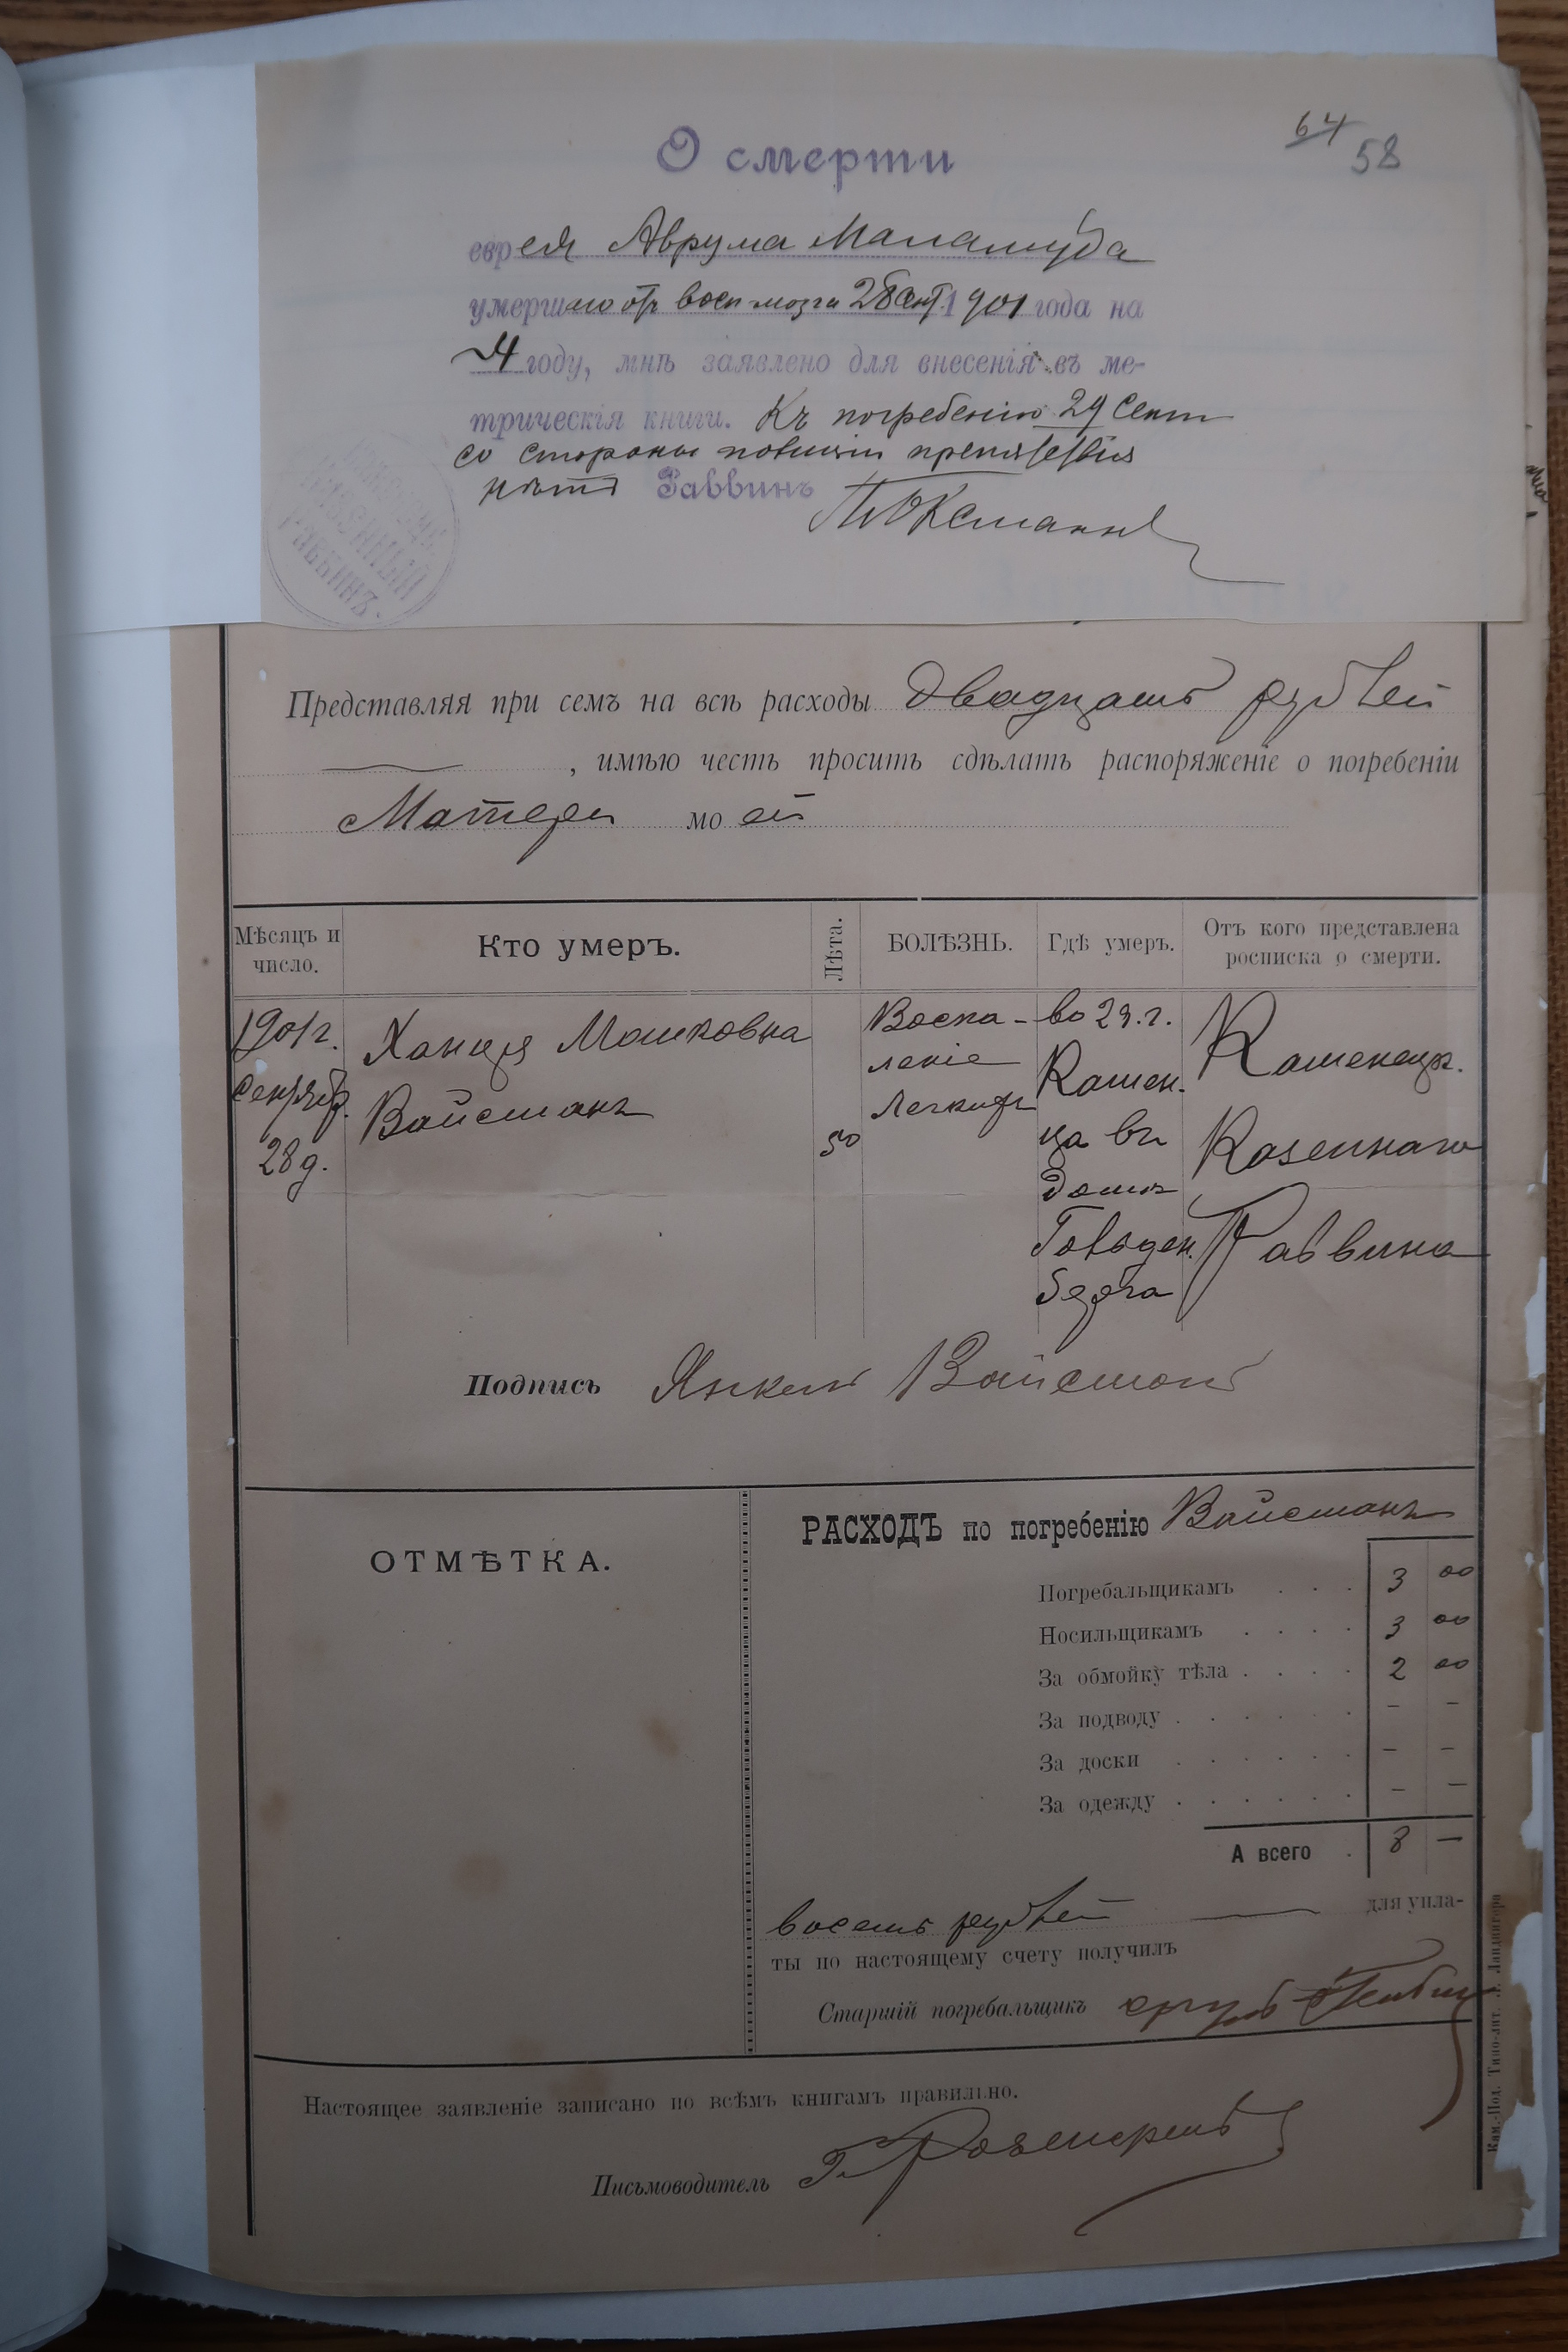 64 58
О смерти
еврея Аврума Маламуда
умершаго отъ восп. мозга 28 Сент. 1901 года на
4 году, мнѣ заявлено для внесенія въ ме-
трическія книги. Къ погребенію 29 Сент
со стороны полиціи препятствія
нѣтъ Раввинъ
КАЗЕННЫЙ
РАВВИНЪ.
Представляя при семъ на всѣ расходы двадцать рублей
, имѣю честь просить сдѣлать распоряженіе о погребеніи
Матери моей
Мѣсяцъ и число. Кто умеръ. Лѣта. БОЛѢЗНЬ. Гдѣ умеръ. Отъ кого представлена росписка о смерти.
1901 г. Ханця Мошковна Воспа- во 2 ч. г. Каменецк.
Сентябр. Вайсманъ 50 леніе Камен. Казеннаго
28 д. Легкихъ ца въ Раввина
домѣ
Гольден.
берга
Подпись Янкель Вайсманъ
ОТМѢТКА.
РАСХОДЪ по погребенію Вайсманъ
Погребальщикамъ . . . 3 00
Носильщикамъ . . . . 3 00
За обмойку тѣла . . . . 2 00
За подводу . . . . . . – –
За доски . . . . . . – –
За одежду . . . . . . – –
А всего . 8 —
восемь рублей — для упла-
ты по настоящему счету получилъ
Старшій погребальщикъ
Настоящее заявленіе записано по всѣмъ книгамъ правильно.
Письмоводитель Г. Розенкранъ
Кам.-Под. Типо-лит. Л. Ландвигера